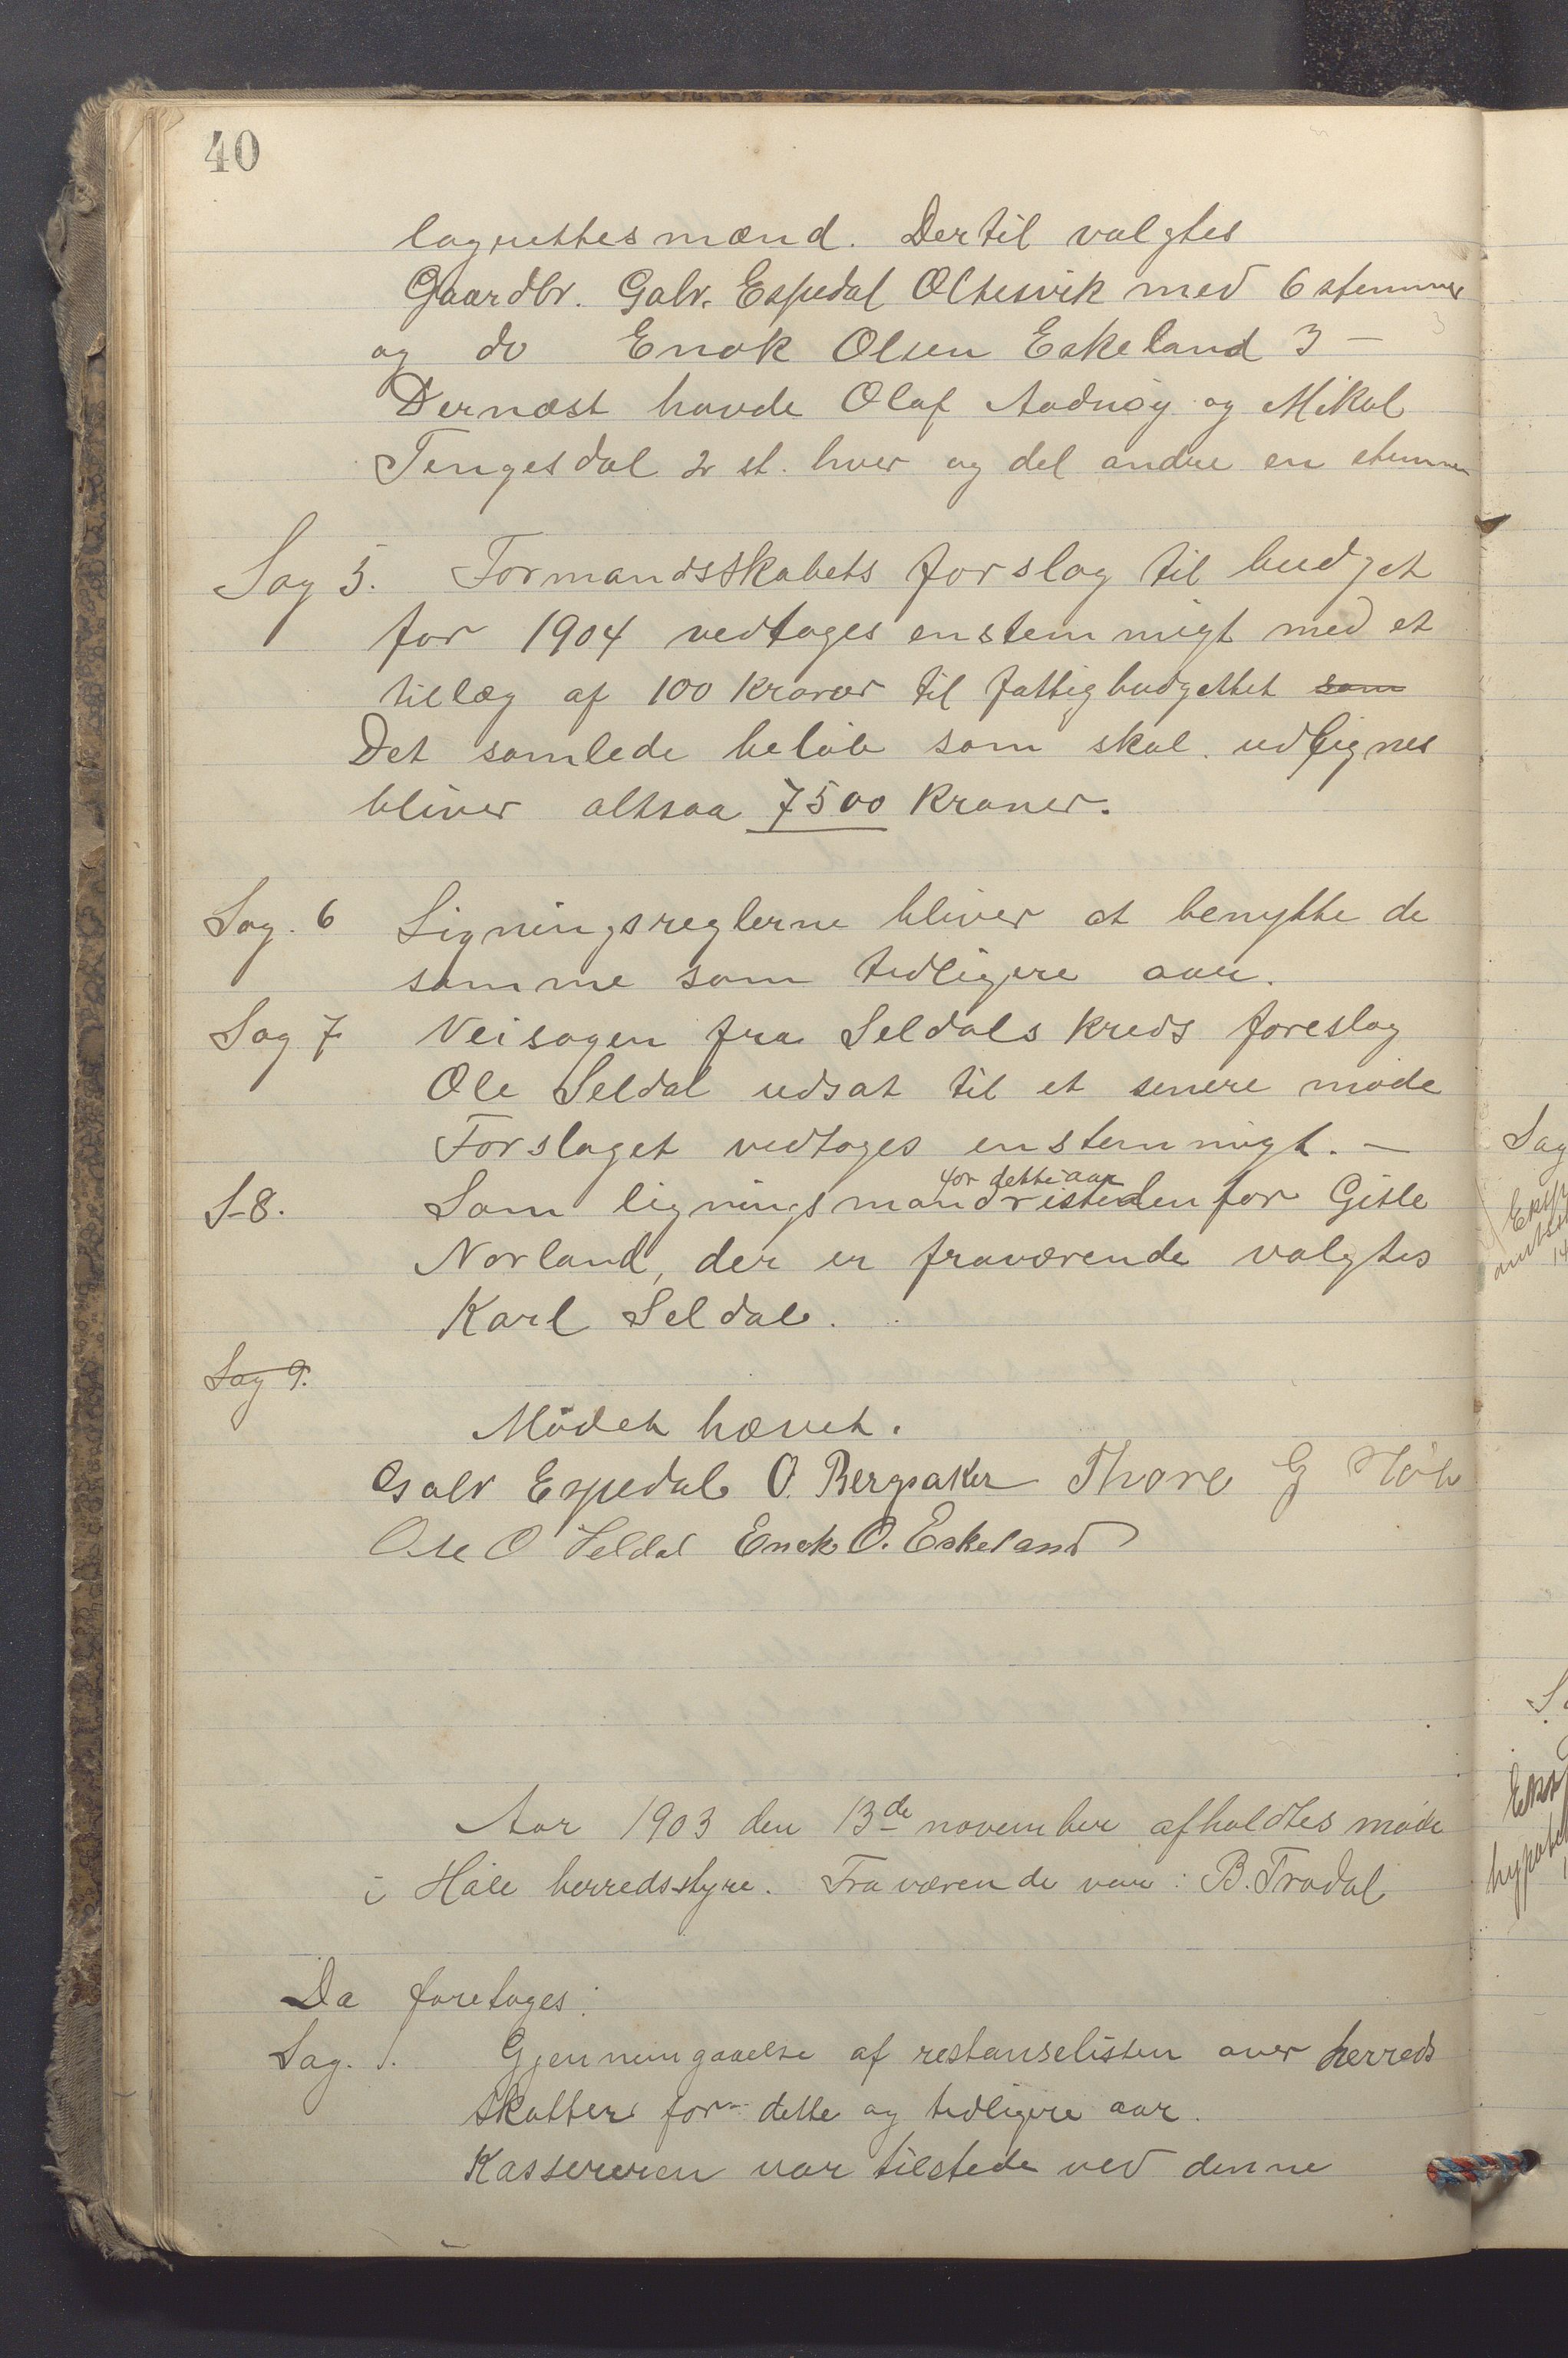 40
lagrettesmænd. Dertil valgtes
Gaardbr. Galv. Espedal Oltesvik med 6 stemmer
og do Enok Olsen Eskeland 3 —
Dernæst havde Olaf Aadnøy og Mikal
Tengesdal 2 st. hver og del andre en stemme
Sag 5. Formandsskabets forslag til budget
for 1904 vedtoges enstemmigt med et
tillæg af 100 kroner til fattigbudgettet som
Det samlede beløb som skal udlignes
bliver altsaa 7500 kroner.
Sag. 6 Ligningsreglerne bliver at benytte de
samme som tidligere aar.
Sag 7 Veisagen fra Seldals kreds foreslog
Ole Seldal udsat til et senere møde
Forslaget vedtoges enstemmigt. —
for dette aar
S-8. Som ligningsmand istedenfor Gitle
Norland, der er fraværende valgtes
Karl Seldal.
Sag 9.
Mödet hævet.
Galv Espedal O. Bergsaker Thore G
Ole O Seldal Enok O. Eskeland
Aar 1903 den 13de november afholdtes møde
i Høle herredsstyre. Fraværende var: B. Trodal
Da foretoges:
Sag. 1. Gjennemgaaelse af restanselisten over herreds
skatter for dette og tidligere aar.
Kassereren var tilstede ved denne